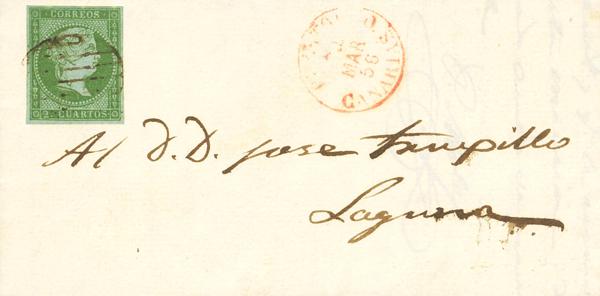 CORREOS
2 CUARTOS
MAR
56
CANARIAS
Al D. D. Jose Trupillo
Laguna